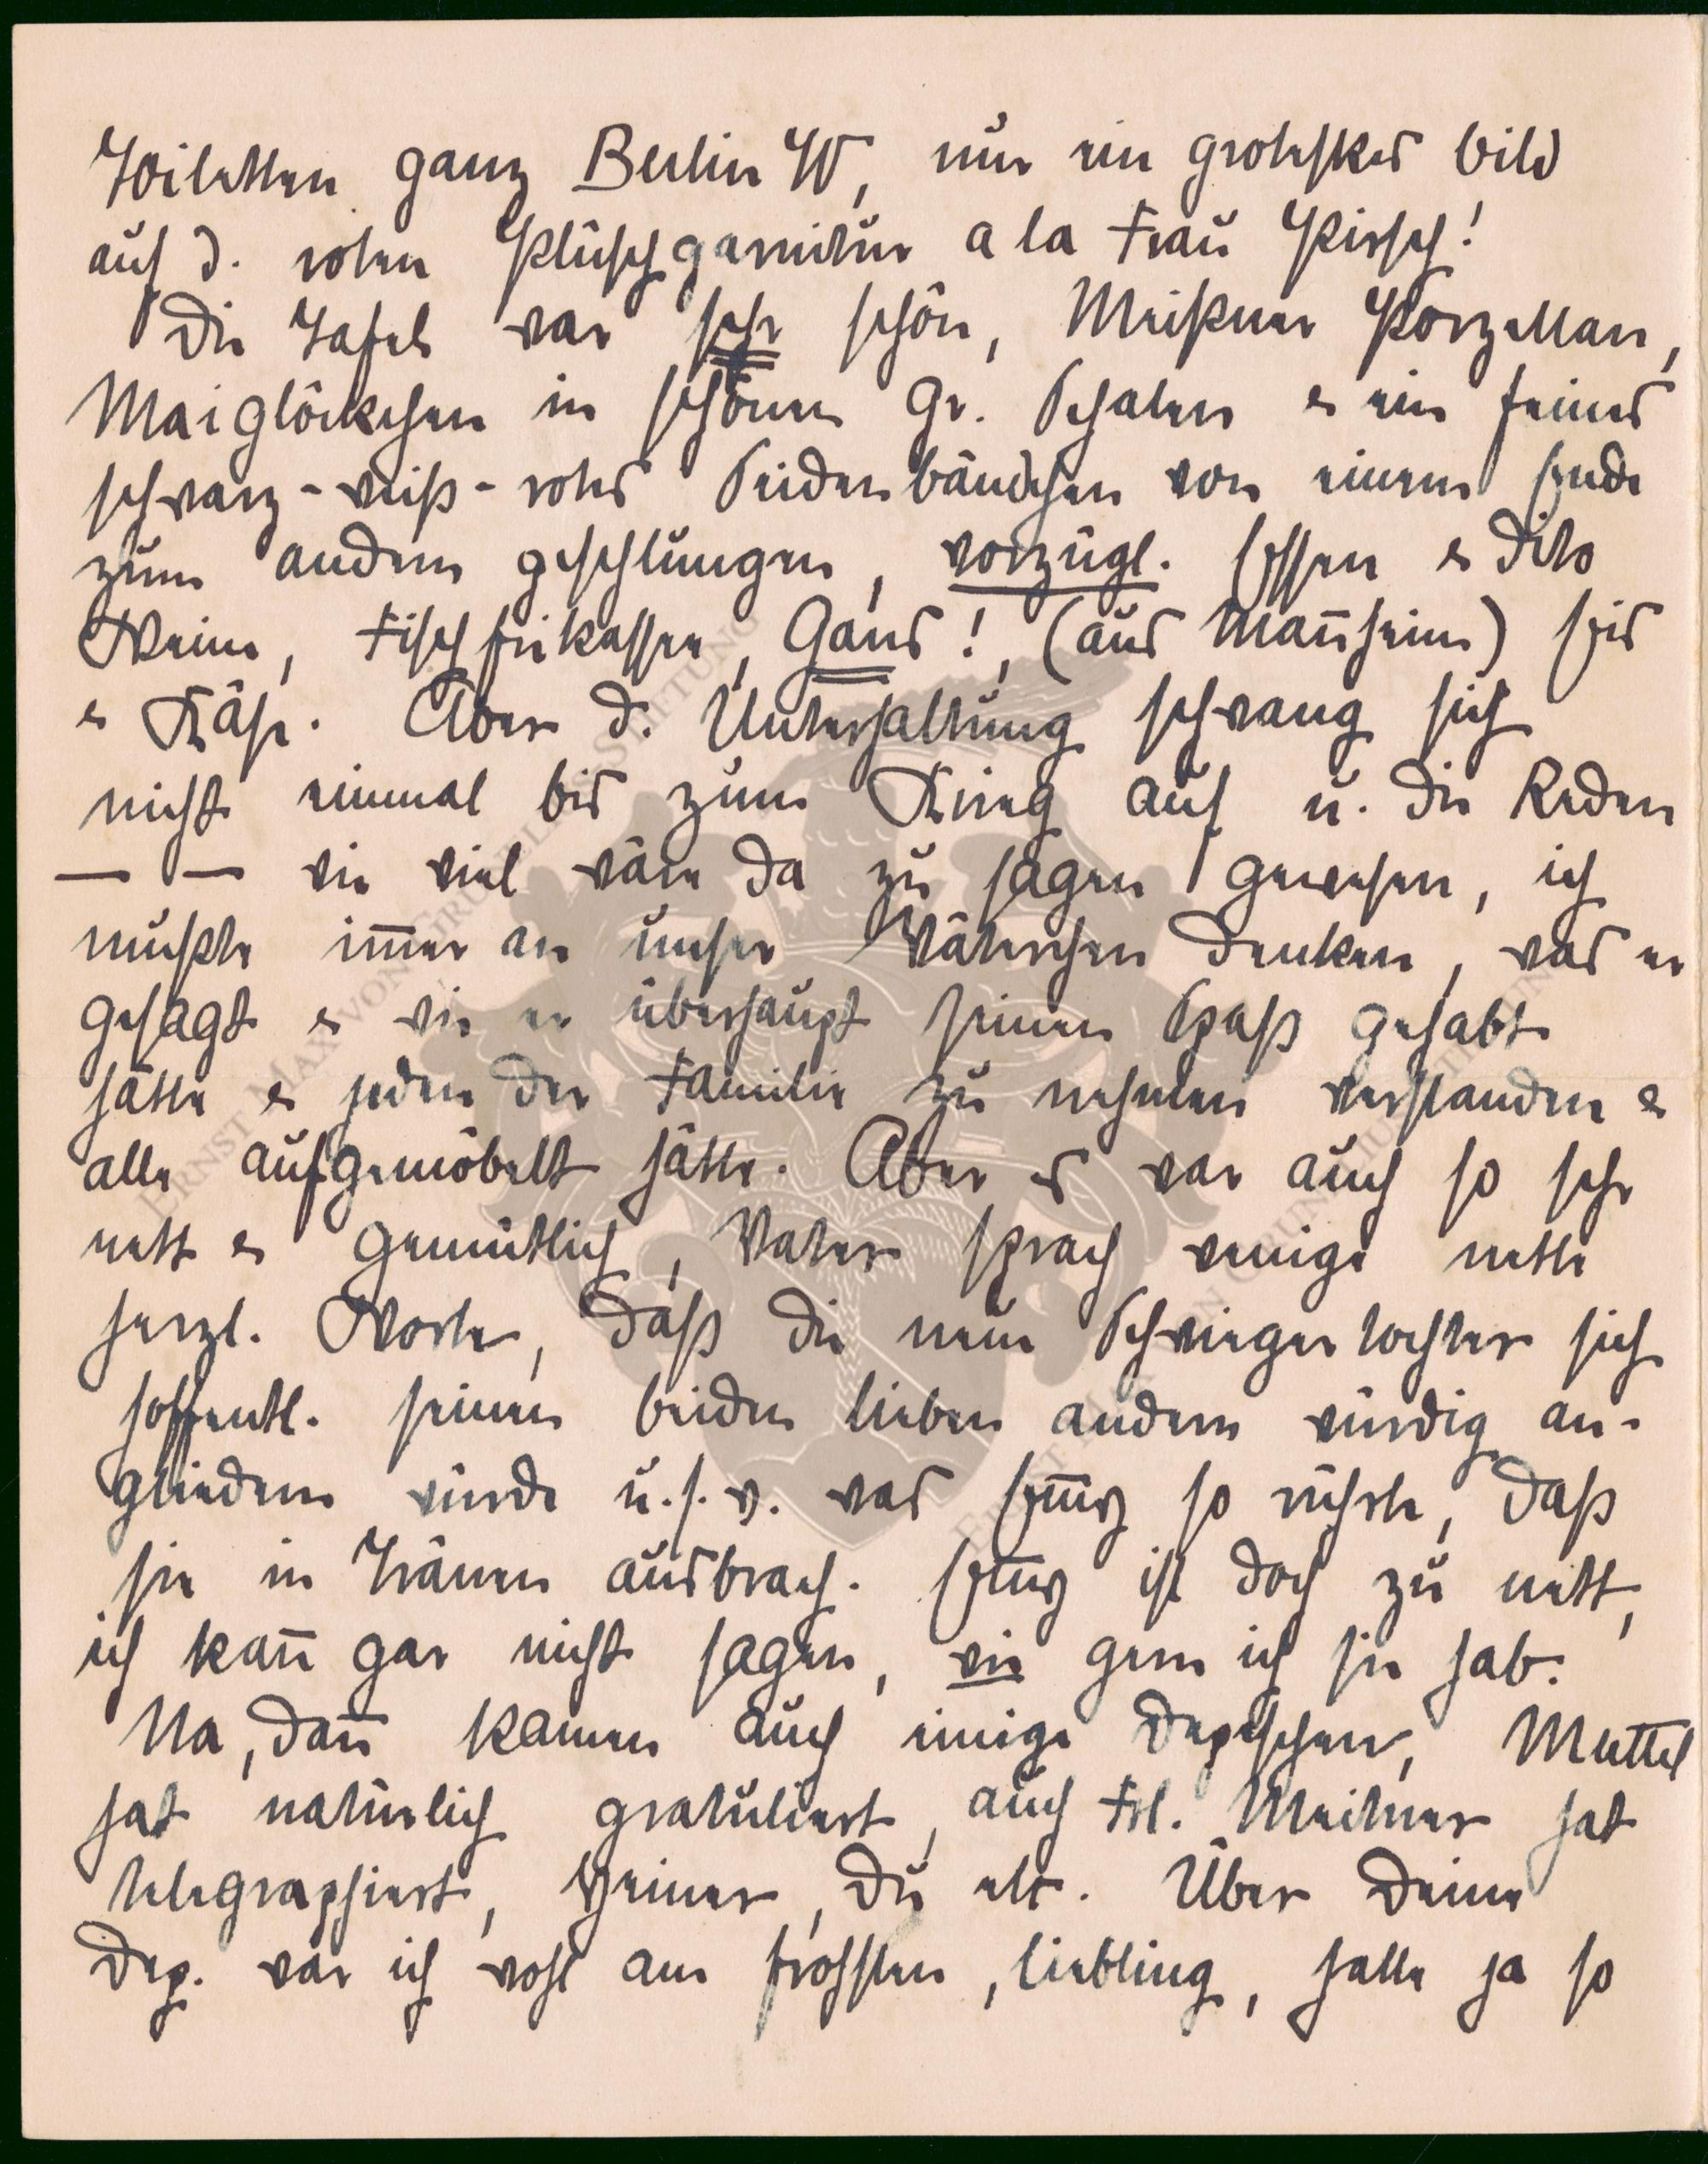 Toiletten ganz Berlin W, nur ein groteskes Bild
auf d. roten Plüschgarnitur a la Frau Pirsch!
Die Tafel war sehr schön, Meißner Porzellan,
Maiglöckchen in schönen gr. Schalen & ein feines
schwarz-weiß-rotes Seidenbändchen von einem Ende
zum andern geschlungen, vorzügl. Essen & dito
Weine, Fischfrikassee, Gans!, (aus Mañheim) Eis
& Käse. Aber d. Unterhaltung schwang sich
nicht einmal bis zum Krieg auf u. die Reden
— — wie viel wäre da zu sagen gewesen, ich
mußte im̄er an unser Väterchen denken, was er
gesagt & wie er überhaupt seinen Spaß gehabt
hätte & jeden der Familie zu nehmen verstanden &
alle aufgemöbelt hätte. Aber es war auch so sehr
nett & gemütlich, Vater sprach wenige nette
herzl. Worte, daß die neue Schwiegertochter sich
hoffentl. seinen beiden lieben andern würdig an-
gliedern würde u.s.w. was Em̄y so rührte, daß
sie in Tränen ausbrach. Em̄y ist doch zu nett,
ich kan̄ gar nicht sagen, wie gern ich sie hab.
Na, dan̄ kamen auch einige Depeschen, Muttel
hat natürlich gratuliert, auch Frl. Meitner hat
telegraphiert, Heiner, Du etc. Über Deine
Dep. war ich wohl am frohsten, Liebling, hatte ja so